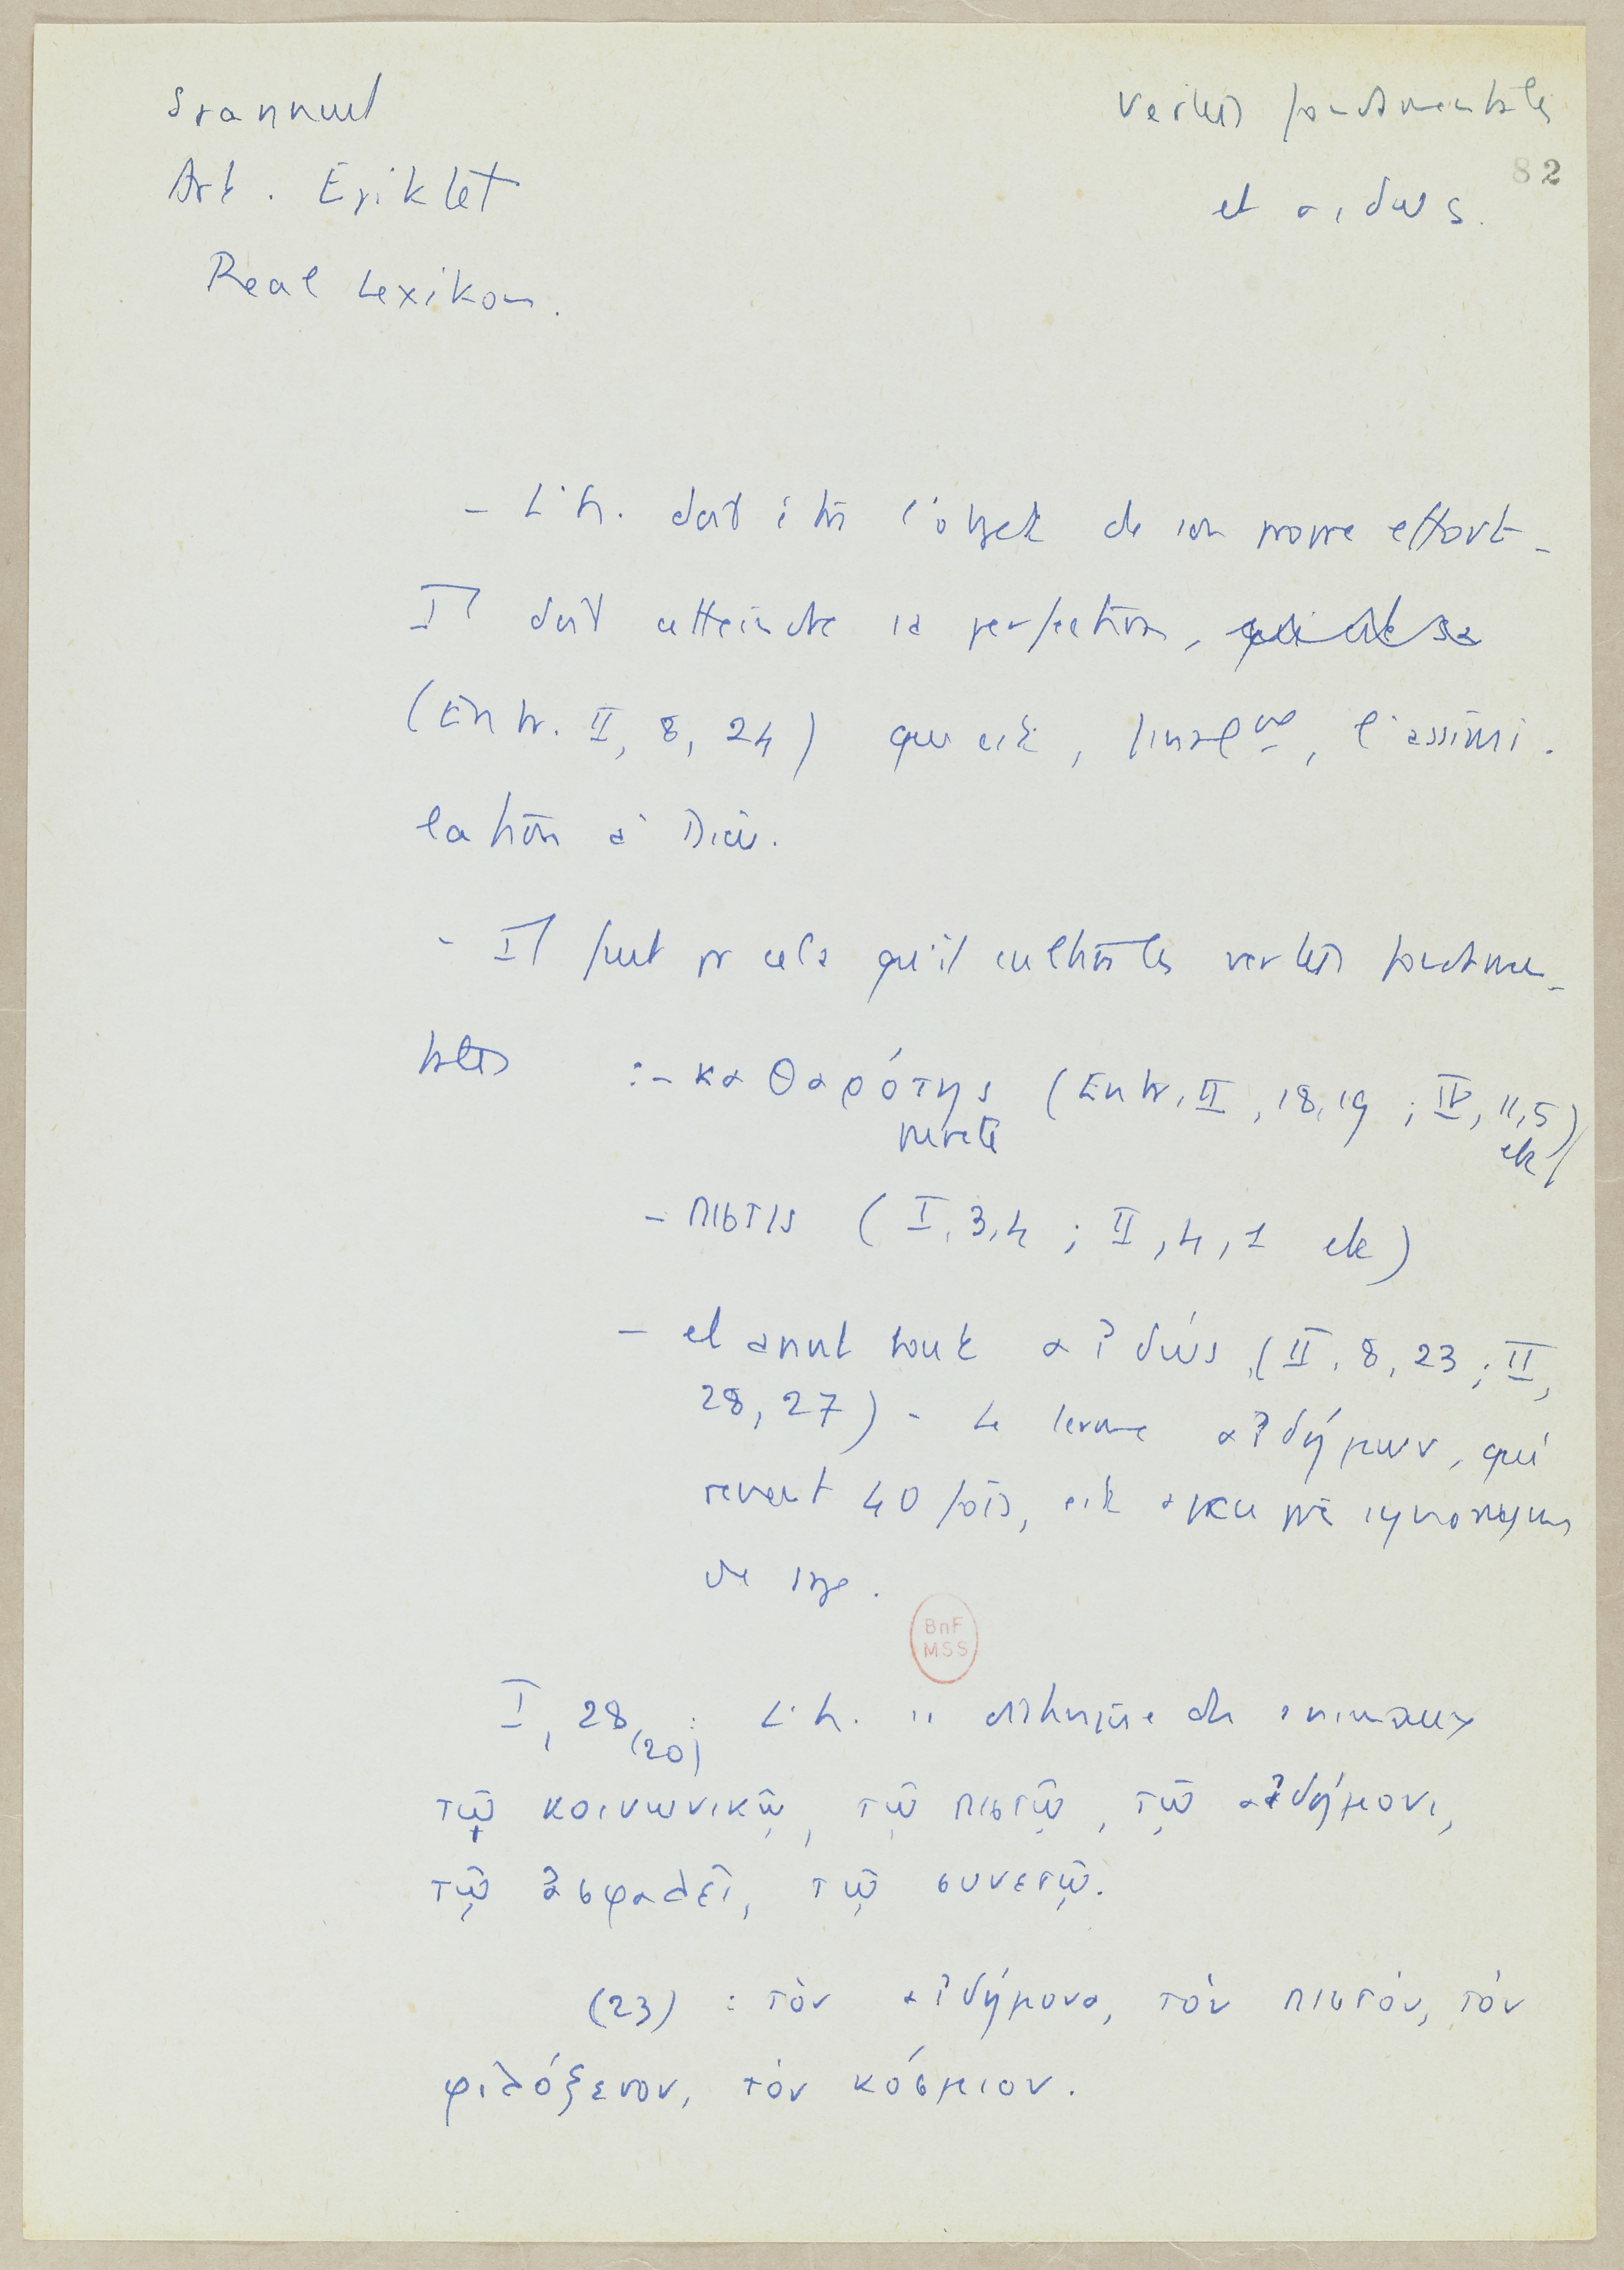 Spanneut
Art. Epiktet
Real Lexikon.
Vertus fondamentales
82
et αἰδώς.
- L'h. doit être l'objet de son propre effort -
Il doit atteindre la perfection, qui est sa
(Entr. II, 8, 24) qui est, finalᵐᵉⁿᵗ, l'assimi-
lation à Dieu.
- Il faut pr cela qu'il cultive les vertus fondamen-
tales :- καθαρότης (Entr. II, 18, 19 ; IV, 11, 5)
pureté
etc
- πιστις (I, 3, 4 ; II, 4, 1 etc)
- et avant tout αἰδώς (II, 8, 23 ; II,
28, 27) - Le terme αἰδήμων, qui
revient 40 fois, est à peu près synonyme
de sage.
BnF
MSS
I, 28, (20) : L'h. se distingue des animaux
τῷ κοινωνικῷ, τῷ πιστῷ, τῷ αἰδήμονι,
τῷ ἀσφαλεῖ, τῷ συνετῷ.
(23) : τὸν αἰδήμονα, τὸν πιστόν, τὸν
φιλόξενον, τὸν κόσμιον.